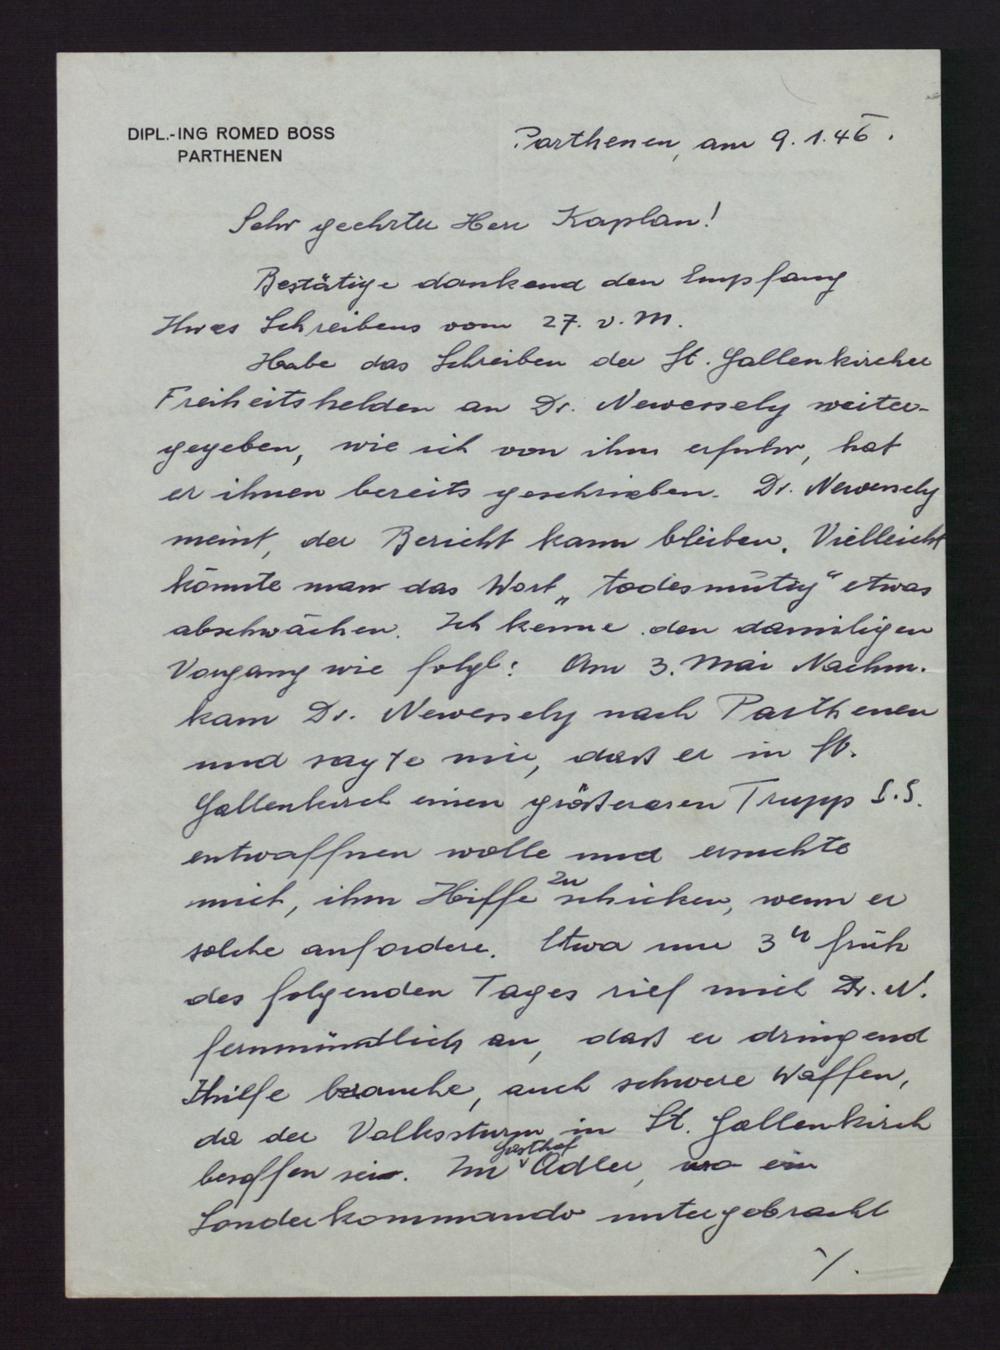 DIPL.-ING ROMED BOSS
PARTHENEN
Parthenen, am 9.1.46.
Sehr geehrter Herr Kaplan!
Bestätige dankend den Empfang
Ihres Schreibens vom 27. v. M.
Habe das Schreiben der St. Gallenkircher
Freiheitshelden an Dr. Newessely weiter-
gegeben, wie ich von ihm erfuhr, hat
er ihnen bereits geschrieben. Dr. Newessely
meint, der Bericht kann bleiben. Vielleicht
könnte man das Wort „todesmutig“ etwas
abschwächen. Ich kenne den damaligen
Vorgang wie folgt: Am 3. Mai Nachm.
kam Dr. Newessely nach Parthenen
und sagte mir, dass er in St.
Gallenkirch einen grösseren Trupp S.S.
entwaffnen wolle und ersuchte
mich, ihm Hilfe zu schicken, wenn er
solche anfordere. Etwa um 3h früh
des folgenden Tages rief mich Dr. N.
fernmündlich an, dass er dringend
Hilfe brauche, auch schwere Waffen,
da der Volkssturm in St. Gallenkirch
besoffen sei. Im Gasthof Adler, wo ein
Sonderkommando untergebracht
./.